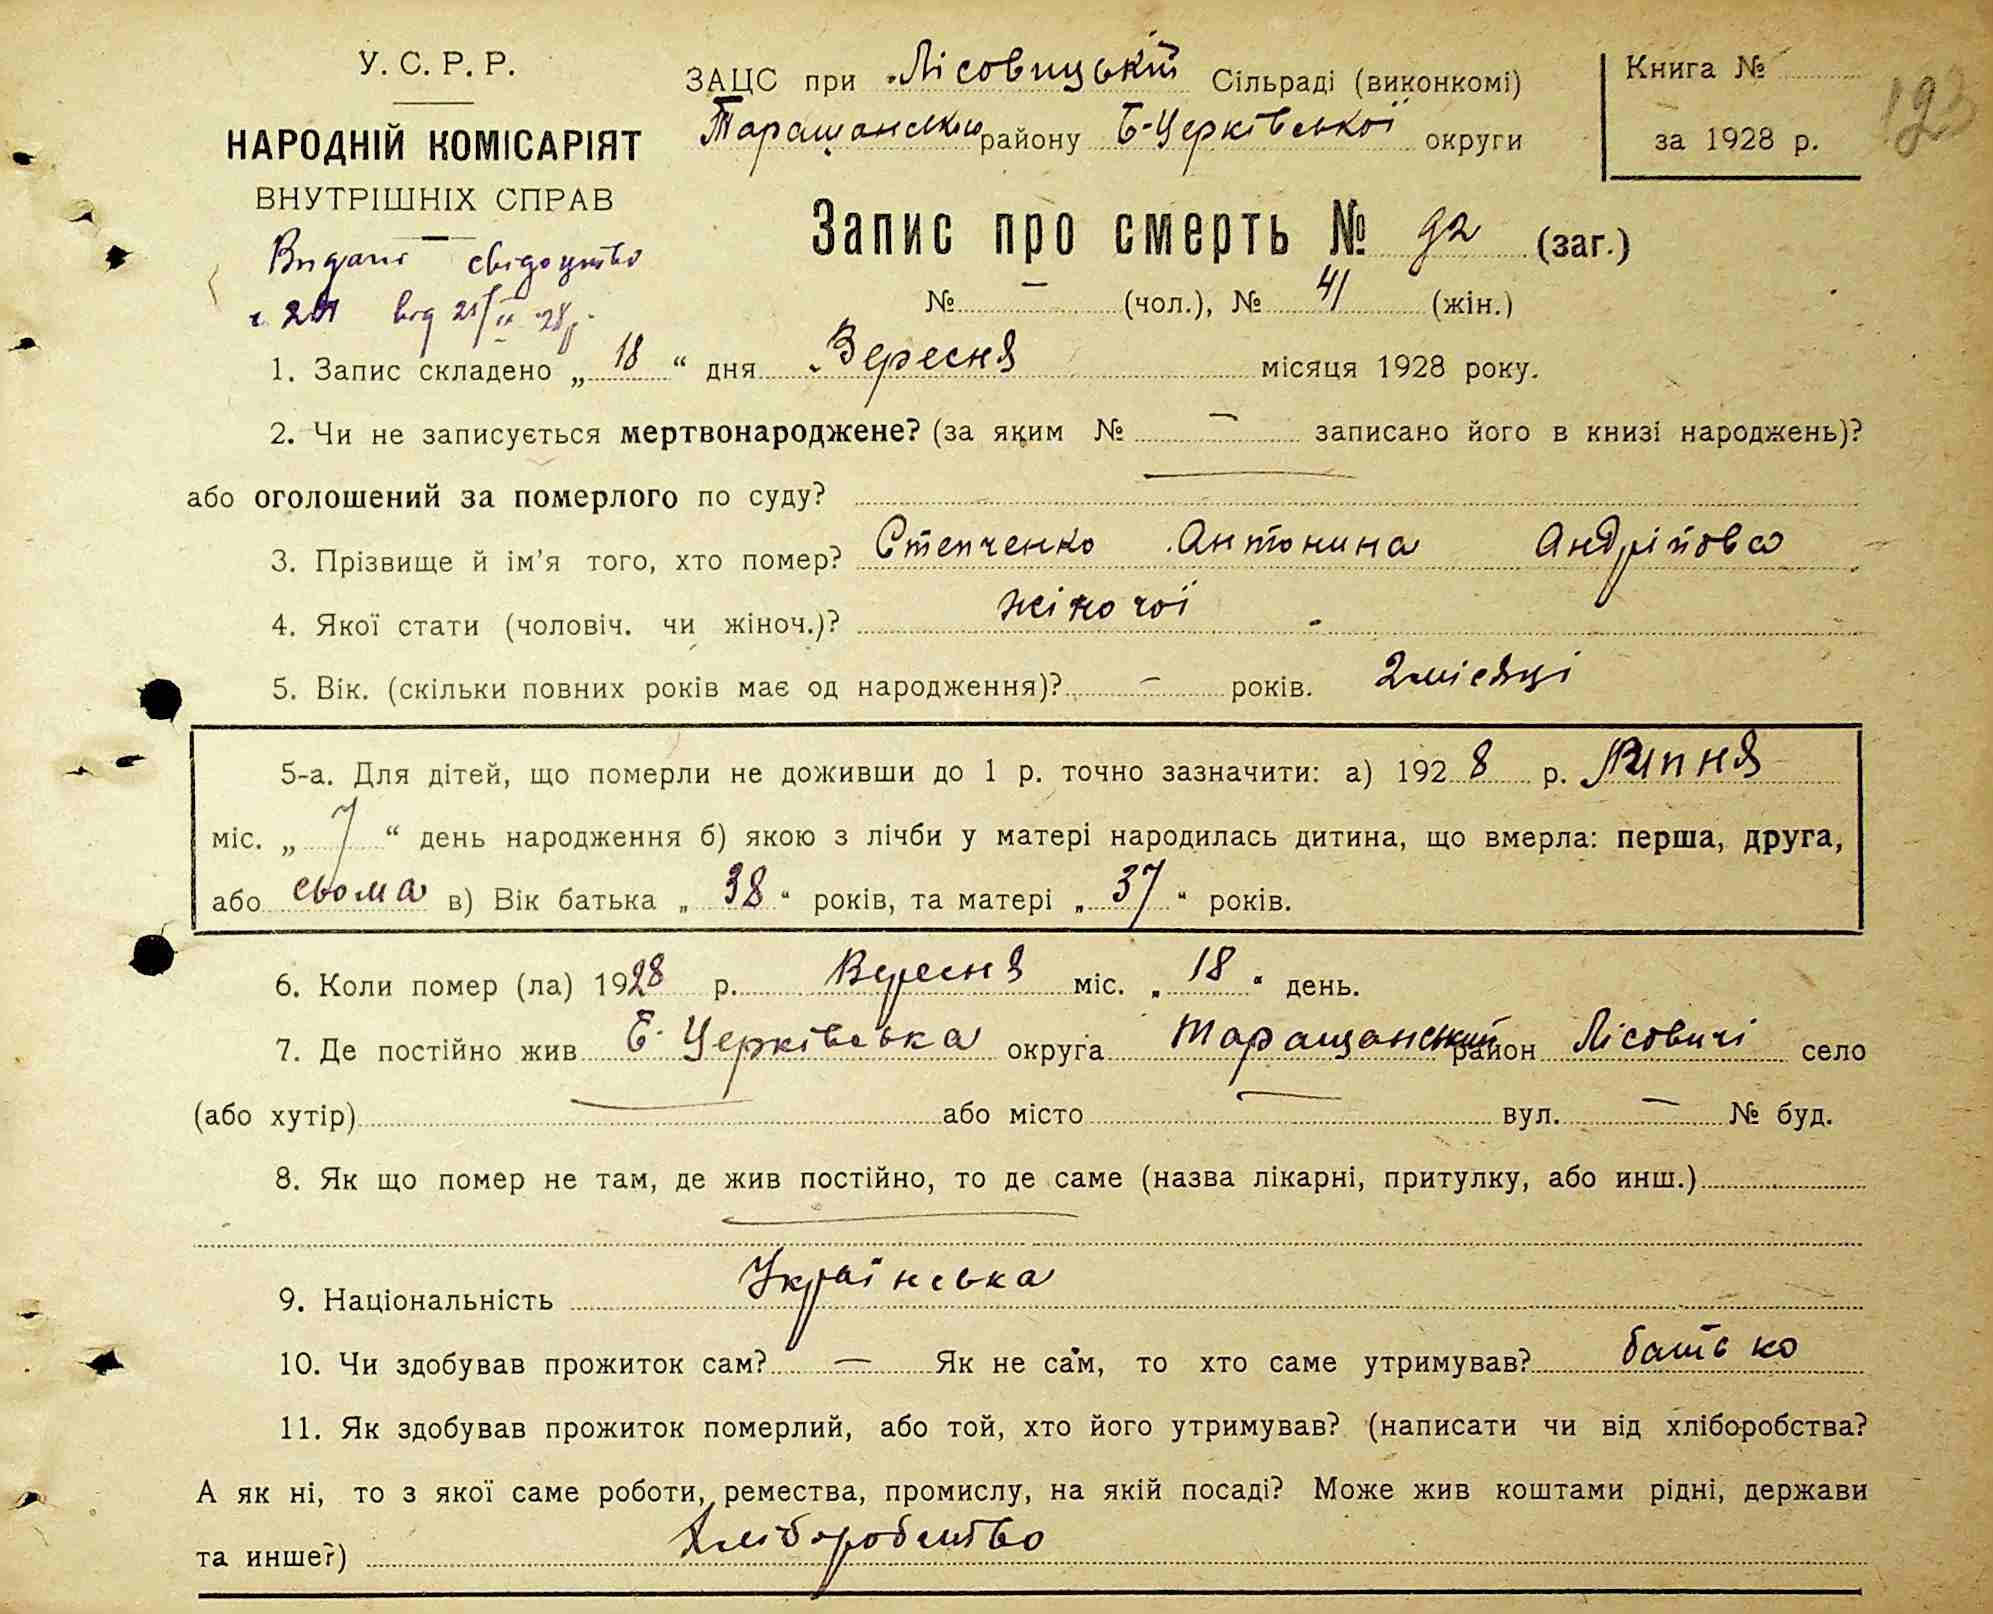 У. С. Р. Р.
НАРОДНІЙ КОМІСАРІЯТ
ВНУТРІШНІХ СПРАВ
Видано свідоцтво
ЗАЦС при Лісовицькій Сільраді (виконкомі)
Таращанськ району Б-Церківської округи
Книга №
за 1928 р.
123
Запис про смерть № 92 (заг.)
№ — (чол.), № 41 (жін.)
1. Запис складено „ 18 “ дня Вересня місяця 1928 року.
2. Чи не записується мертвонароджене? (за яким № — записано його в книзі народжень)?
або оголошений за померлого по суду? —
3. Прізвище й ім'я того, хто помер? Степченко Антонина Андрійовна
4. Якої стати (чоловіч. чи жіноч.)? жіночої
5. Вік. (скільки повних років має од народження)? — років. 2 місяці
5-а. Для дітей, що померли не доживши до 1 р. точно зазначити: а) 1928 р. Липня
міс. „ 7 “ день народження б) якою з лічби у матері народилась дитина, що вмерла: перша, друга,
або сьома в) Вік батька „ 38 “ років, та матері „ 37 “ років.
6. Коли помер (ла) 1928 р. Вересня міс. „ 18 “ день.
7. Де постійно жив Б-Церківська округа Таращанський район Лісовичі село
(або хутір) — або місто — вул. — № буд.
8. Як що помер не там, де жив постійно, то де саме (назва лікарні, притулку, або инш.)
—
9. Національність Українська
10. Чи здобував прожиток сам? — Як не сам, то хто саме утримував? батько
11. Як здобував прожиток померлий, або той, хто його утримував? (написати чи від хліборобства?
А як ні, то з якої саме роботи, ремества, промислу, на якій посаді? Може жив коштами рідні, держави
та инше?) Хліборобство